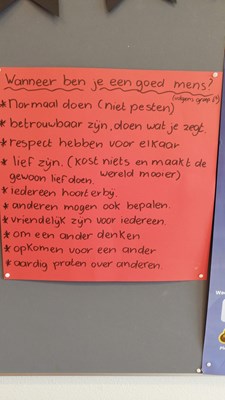 Wanneer ben je een goed mens?
(volgens groep 8)
* Normaal doen (niet pesten)
* betrouwbaar zijn, doen wat je zegt.
* respect hebben voor elkaar
* lief zijn. (kost niets en maakt de
wereld mooier)
gewoon lief doen.
* iedereen hoort erbij.
* anderen mogen ook bepalen.
* vriendelijk zijn voor iedereen.
* om een ander denken
* opkomen voor een ander
* aardig praten over anderen.